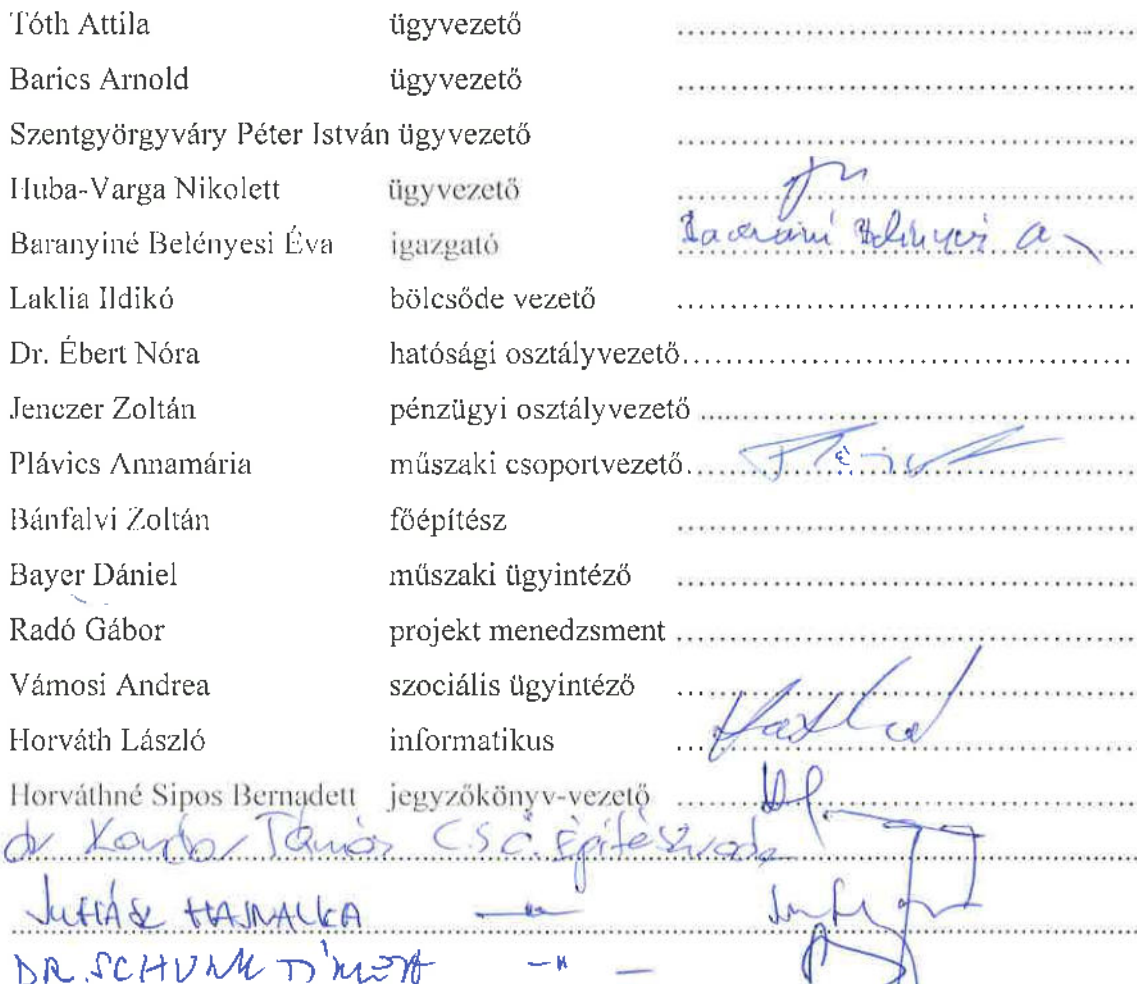 Tóth Attila ügyvezető ........................................
Barics Arnold ügyvezető ........................................
Szentgyörgyváry Péter István ügyvezető ........................................
Huba-Varga Nikolett ügyvezető ........................................
Baranyiné Belényesi Éva igazgató ........................................
Laklia Ildikó bölcsőde vezető ........................................
Dr. Ébert Nóra hatósági osztályvezető........................................
Jenczer Zoltán pénzügyi osztályvezető ........................................
Plávics Annamária műszaki csoportvezető........................................
Bánfalvi Zoltán főépítész ........................................
Bayer Dániel műszaki ügyintéző ........................................
Radó Gábor projekt menedzsment ........................................
Vámosi Andrea szociális ügyintéző ........................................
Horváth László informatikus ........................................
Horváthné Sipos Bernadett jegyzőkönyv-vezető ........................................
dr Tamás Építésziroda
JUHÁSZ HAJNALKA —"—
DR. SCHUNK —"—